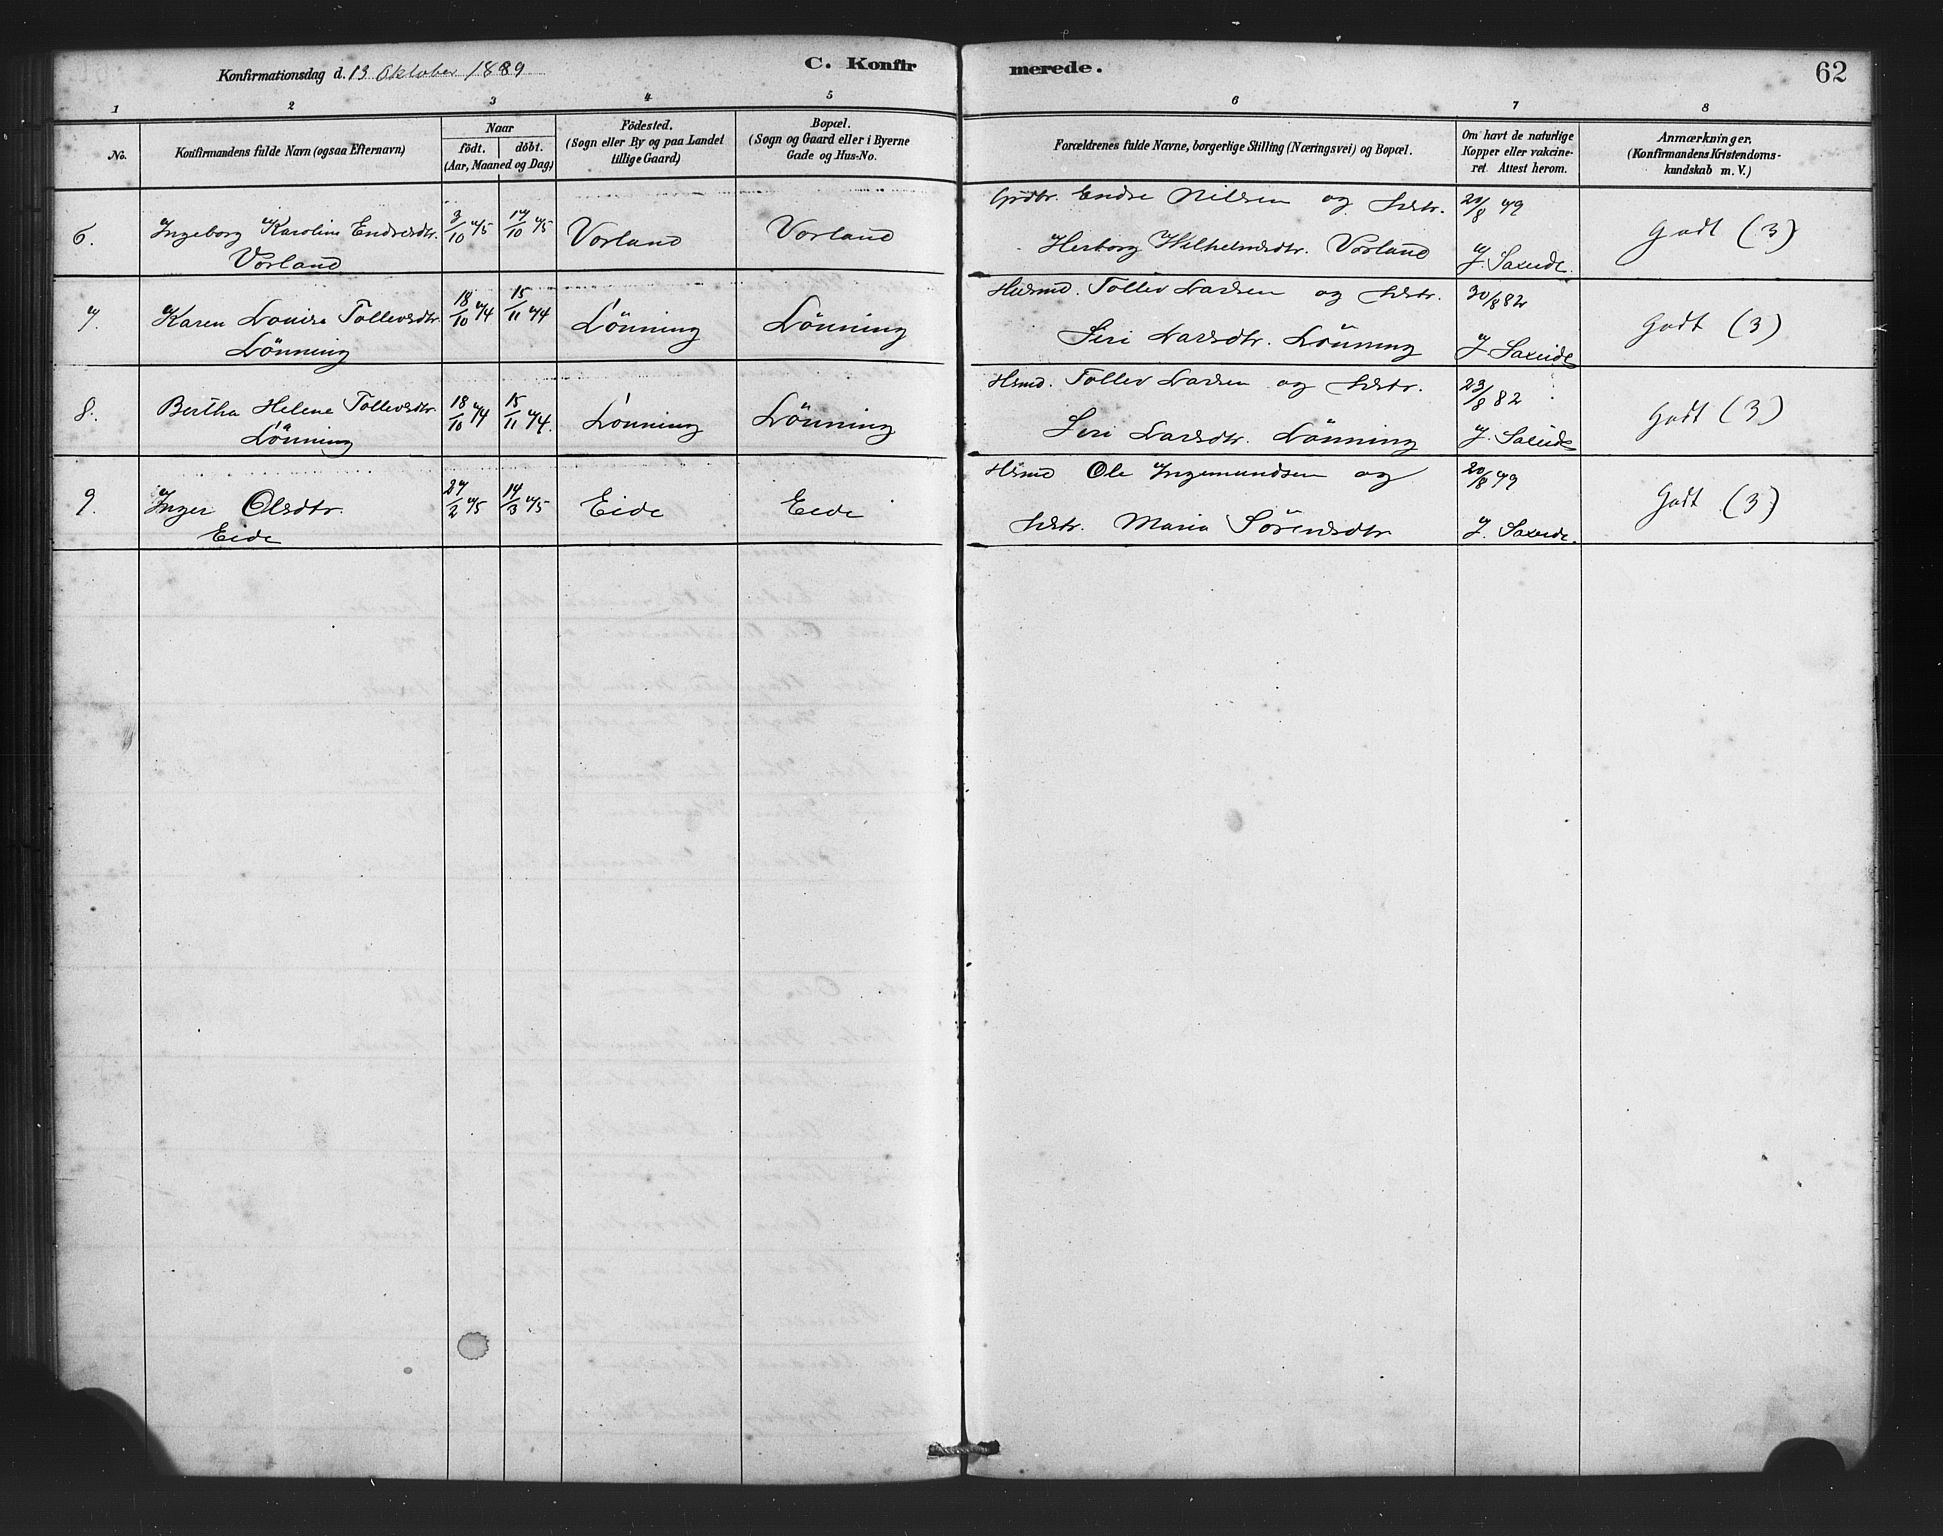 Konfirmationsdag d. 13 Oktober 1889
C. Konfirmerede.
62
1 2 3 4 5 6 7 8
No.
Konfirmandens fulde Navn (ogsaa Efternavn)
Naar
født. døbt.
(Aar, Maaned og Dag)
Födested.
(Sogn eller By og paa Landet
tillige Gaard)
Bopæl.
(Sogn og Gaard eller i Byerne
Gade og Hus-No.
Forældrenes fulde Navne, borgerlige Stilling (Næringsvei) og Bopæl.
Om havt de naturlige
Kopper eller vakcine-
ret. Attest herom.
Anmærkninger.
(Konfirmandens Kristendoms-
kundskab m. V.)
6. Ingeborg Karoline Endresdtr. 3/10 75 17/10 75 Vorland Vorland
Vorland
Grdbr. Endre Nilsen og Hstr. 20/8 79 Godt (3)
Herborg Wilhelmsdtr. Vorland J. Saxeide.
7. Karen Lovise Tollevsdtr. 18/10 74 15/11 74 Lönning Lönning
Lönning
Husmd. Tollev Larsen og Hstr. 30/8 82 Godt (3)
Siri Larsdtr. Lönning J. Saxeide
8. Bertha Helene Tollevsdtr. 18/10 74 15/11 74. Lönning Lönning
Lönning
Hsmd. Tollev Larsen og Hstr. 23/8 82 Godt (3)
Siri Larsdtr. Lönning J. Saxeide
9. Inger Olsdtr. 27/2 75 14/3 75 Eide Eide
Eide
Hsmd Ole Ingemundsen og 20/8 79 Godt (3)
Hstr. Maria Sörensdtr J. Saxeide.